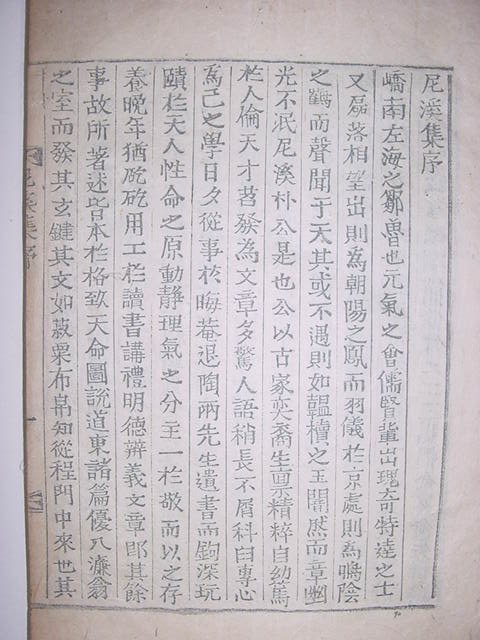 尼溪集序
嶠南左海之鄒魯也元氣之會儒賢輩出瑰奇特達之士
又磊落相望出則為朝陽之鳳而羽儀於京處則為鳴陰
之鶴而聲聞于天其或不遇則如韞櫝之玉闇然而章幽
光不泯尼溪朴公是也公以古家奕裔生禀精粹自幼篤
於人倫天才茗發為文章多驚人語稍長不屑科臼專心
為己之學日夕從事於晦菴退陶兩先生遺書而鉤深玩
賾於天人性命之原動靜理氣之分主一於敬而以之存
養晩年猶矻矻用工於讀書講禮明德辨義文章卽其餘
事故所著述皆本於格致天命圖說道東諸篇優入濂翁
之室而發其玄鍵其文如菽粟布帛知從程門中來也其